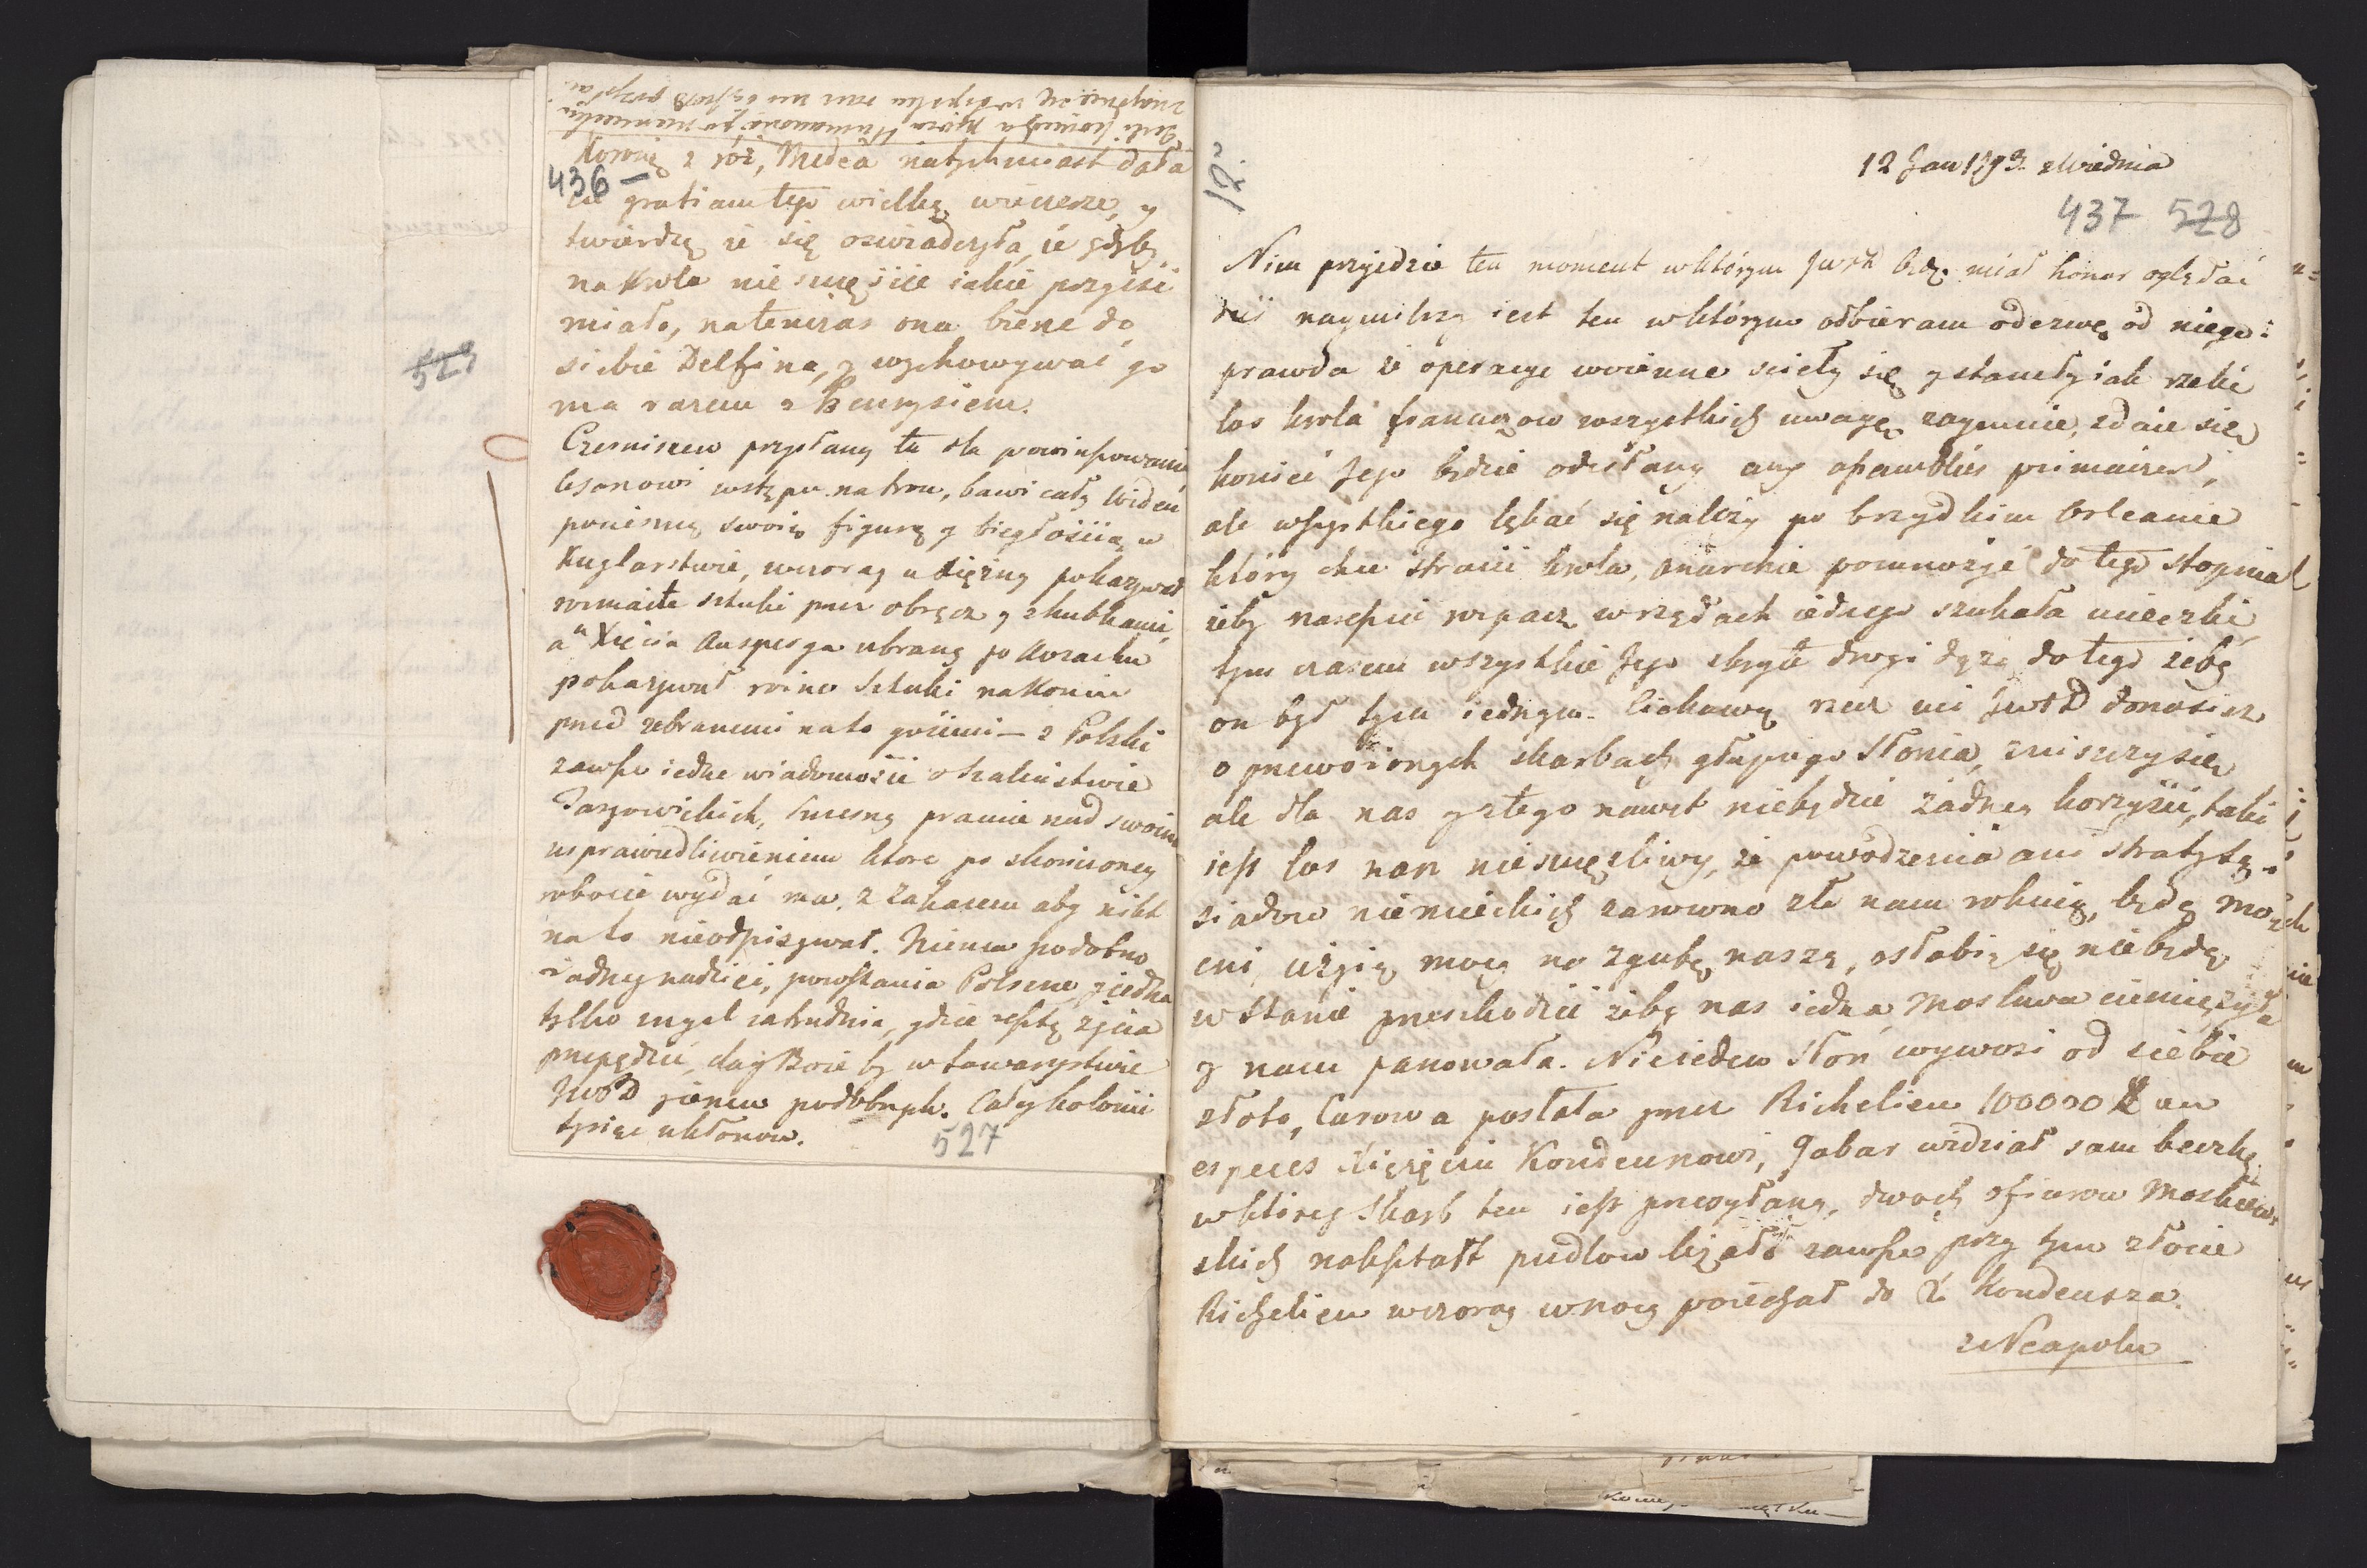 koronę z róż, Medea natychmiast dała
436 —
in gratiam tego wielką wieczerzę, y
twierdzą że się oswiadczyła, że gdyby
na Krola nieszczęście iakie przyiść
miało, natenczas ona bierze do
siebie Delfina, y wychowywać go
ma razem z Henrysiem.
Czerniszew przysłany tu dla powinszowania
Cesarzowi wstępu na tron, bawi cały Wideń
pocieszną swoią figurą y biegłością w
Kuglarstwie, wczoray u Xiężny pokazywał
rozmaite sztuki przez obręcz y z kubkami,
a u Xięcia Auspesga ubrany po Kozacku
pokazywał rożne sztuki na Koniu
przed zebranemi na to gośćmi — z Polski
zawsze iedne wiadomości o szalenstwie
Targowickich, Szczesny pracuie nad swoim
usprawiedliwieniem ktore po skonczoney
robocie wydać ma, z zakazem aby nikt
na to nieodpisywał. Niema podobno
żadney nadziei, powstania Polszcze, y iedna
tylko mysl zatrudnia, gdzie resztę życia
przepędzić, day Boże by w towarzystwie
JWWD y iemu podobnych. Całey kolonii
tysiąc ukłonow.
527
529
12 Jan 1793. z Wiednia
437 528
Nim przyjedzie ten moment w ktorym JWWD będę miał honor oglądać
dziś naymilszy iest ten w ktorym odbieram odezwę od niego:
prawda że operacye woienne scieły się y staneły iak rzeki
los krola francuzow wszystkich uwagę zaymuie, zdaie się
koniec Jego będzie odesłany aux assemblées primaires,
ale wszystkiego lękać się należy po brzydkim Orleanie
który chce stracić krola, anarchie pomnożyć do tego stopnia
żeby narescie rozpacz w rządach iednego szukała ucieczki,
tym czasem wszystkie Jego skryte drogi dążą do tego żeby
on był tym iednym. Ciekawą rzecz mi JWWD donosisz
o przewożonych skarbach głupiego Słonia, zniszczy się
ale dla nas y z tego nawet niebędzie żadney korzyści, taki
iest los nasz nieszczęśliwy, że powodzenia ani straty są-
siadow niemieckich zarowno złe nam rokuią, będą moż-
eni, użyią mocy na zgubę naszą, osłabią się nie będą
w stanie przeszkodzić żeby nas iedna Moskwa ciemiężyła
y nam panowała. Nie ieden Słoń wywozi od siebie
złoto, Carowa posłała przez Richelieu 100000 # en
especes Xiążęciu Kondeuszowi, Jabar widział sam beczkę
w którey skarb ten iest przewożany, dwoch oficerow Moskiew-
skich nakształt pudlow leżało zawsze przy tym złocie
Richelieu wczoray w nocy poiechał do X. Kondeusza.
z Neapolu